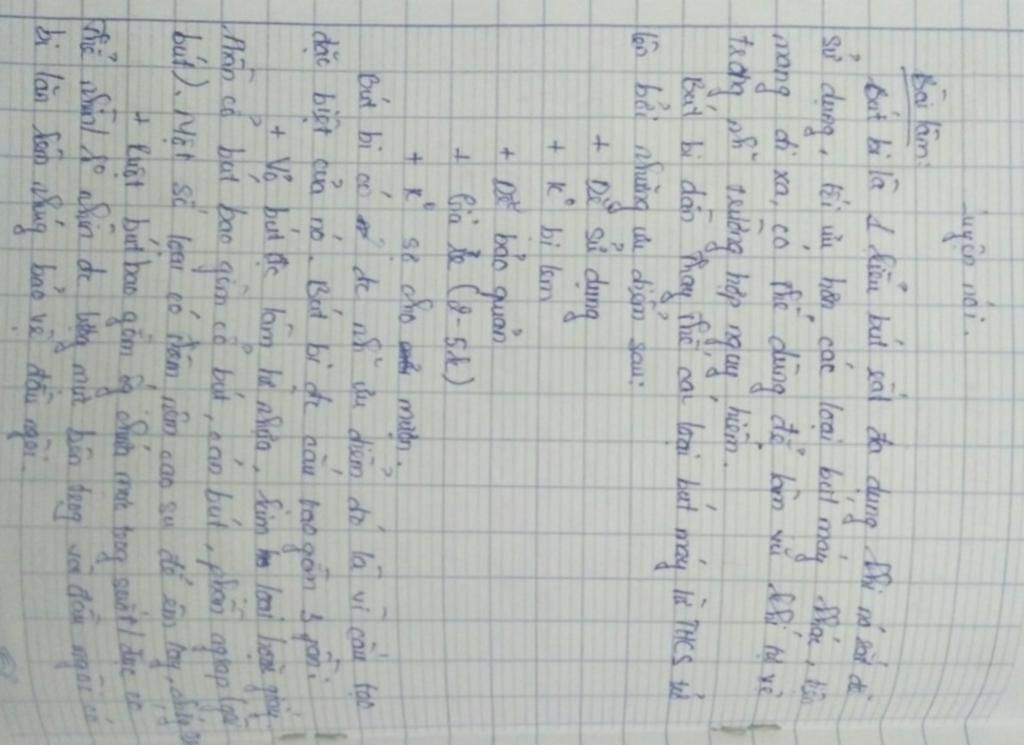 Luyện nói.
Bài làm:
Bút bi là 1 kiểu bút rất đa dụng khi nó rất dễ
sử dụng, tối ưu hơn các loại bút máy khác, tiện
mang đi xa, có thể dùng để làm vũ khí tự vệ
trong nh~ trường hợp nguy hiểm.
Bút bi dần thay thế các loại bút máy từ THCS trở
lên bởi những ưu điểm sau:
+ Dễ sử dụng
+ K° bị lem
+ Dễ bảo quản
+ Giá rẻ (2-5k)
+ K° sợ cho mượn.
Bút bi có đc nh~ ưu điểm đó là vì cấu tạo
đặc biệt của nó. Bút bi đc cấu tạo gồm 3 phần.
+ Vỏ bút đc làm từ nhựa, kim loại hoặc
Phần cổ bút bao gồm cổ bút, cán bút, phần
bút). Một số loại có thêm nệm cao su để êm tay,
+ Ruột bút bao gồm ống chứa mực trong suốt/đục có
thể nhìn/ko nhìn đc lượng mực bên trong và đầu ngòi có
bi lăn kèm nhúng bảo vệ đầu ngòi.